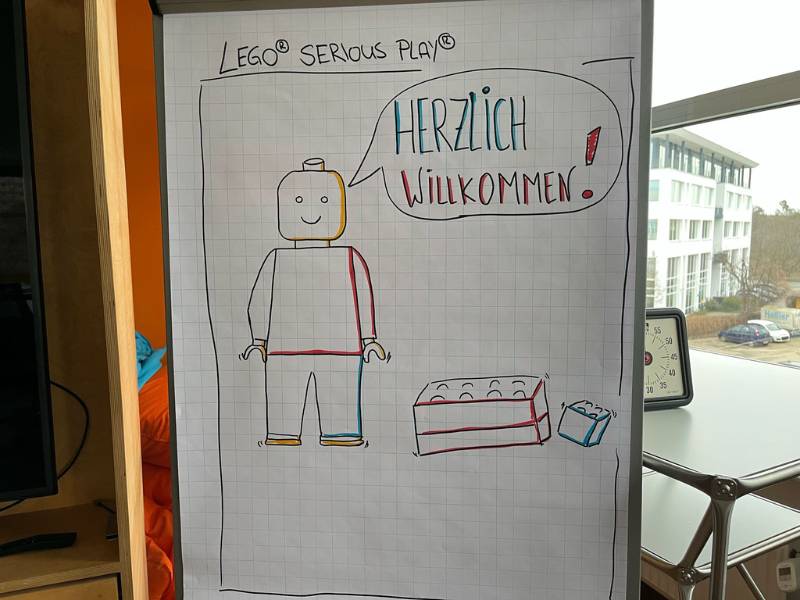 LEGO® SERIOUS PLAY®
HERZLICH
WILLKOMMEN!
55
50
45
40
35
30